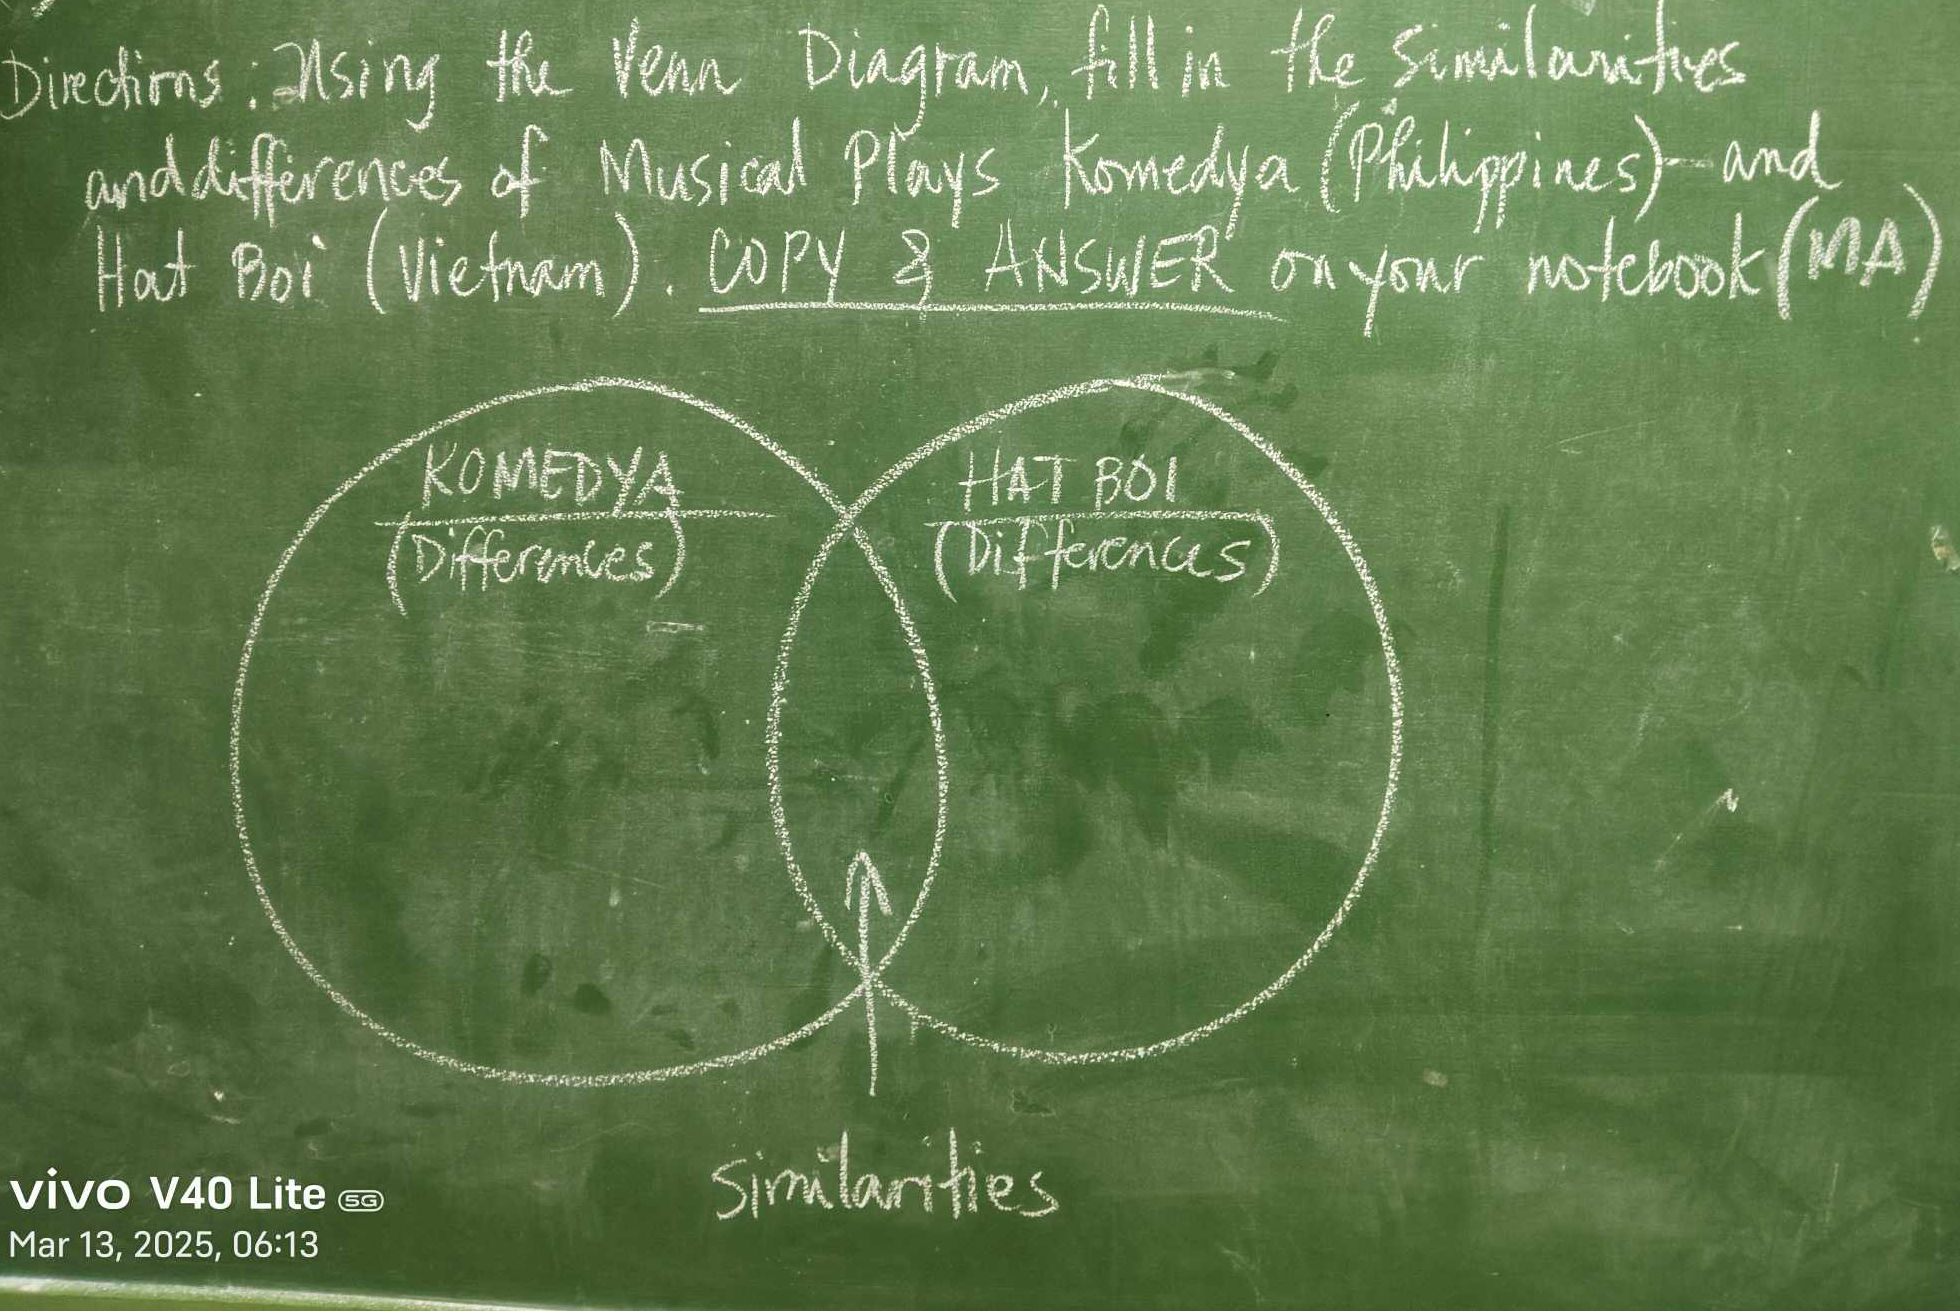 Directions: Using the Venn Diagram, fill in the similarities
and differences of Musical Plays Komedya (Philippines) - and
Hat Boi (Vietnam). COPY & ANSWER on your notebook (MA)
KOMEDYA
(Differences)
HAT BOI
(Differences)
Similarities
vivo V40 Lite 5G
Mar 13, 2025, 06:13